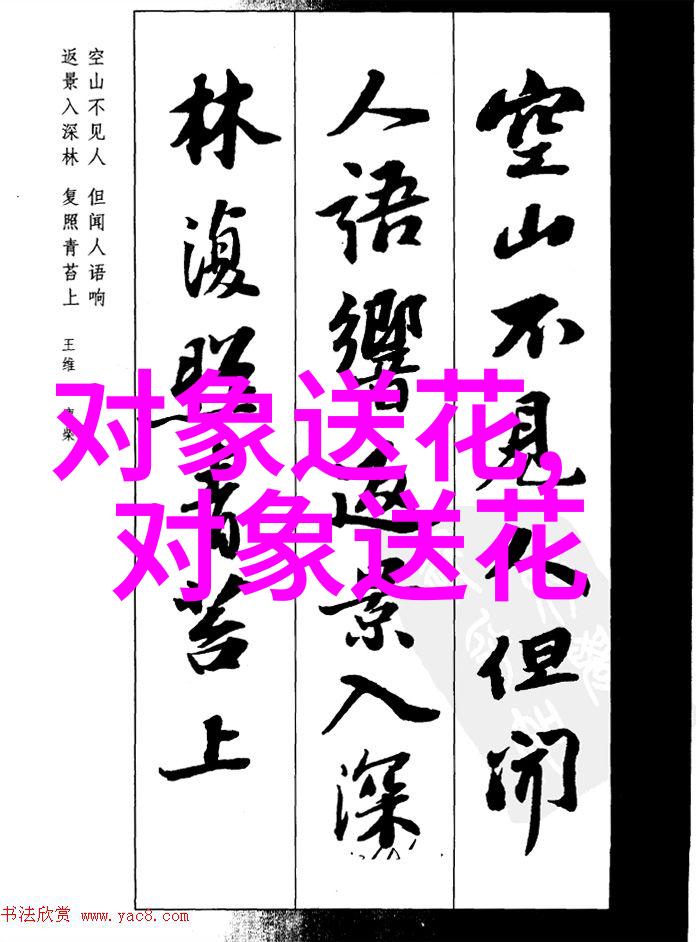 空山不見人但聞
人語響返景入深
林復照青苔上
空山不见人 但闻人语响
返景入深林 复照青苔上 王维 柴
对象送花,
对象送花
书法欣赏 www.yac8.com